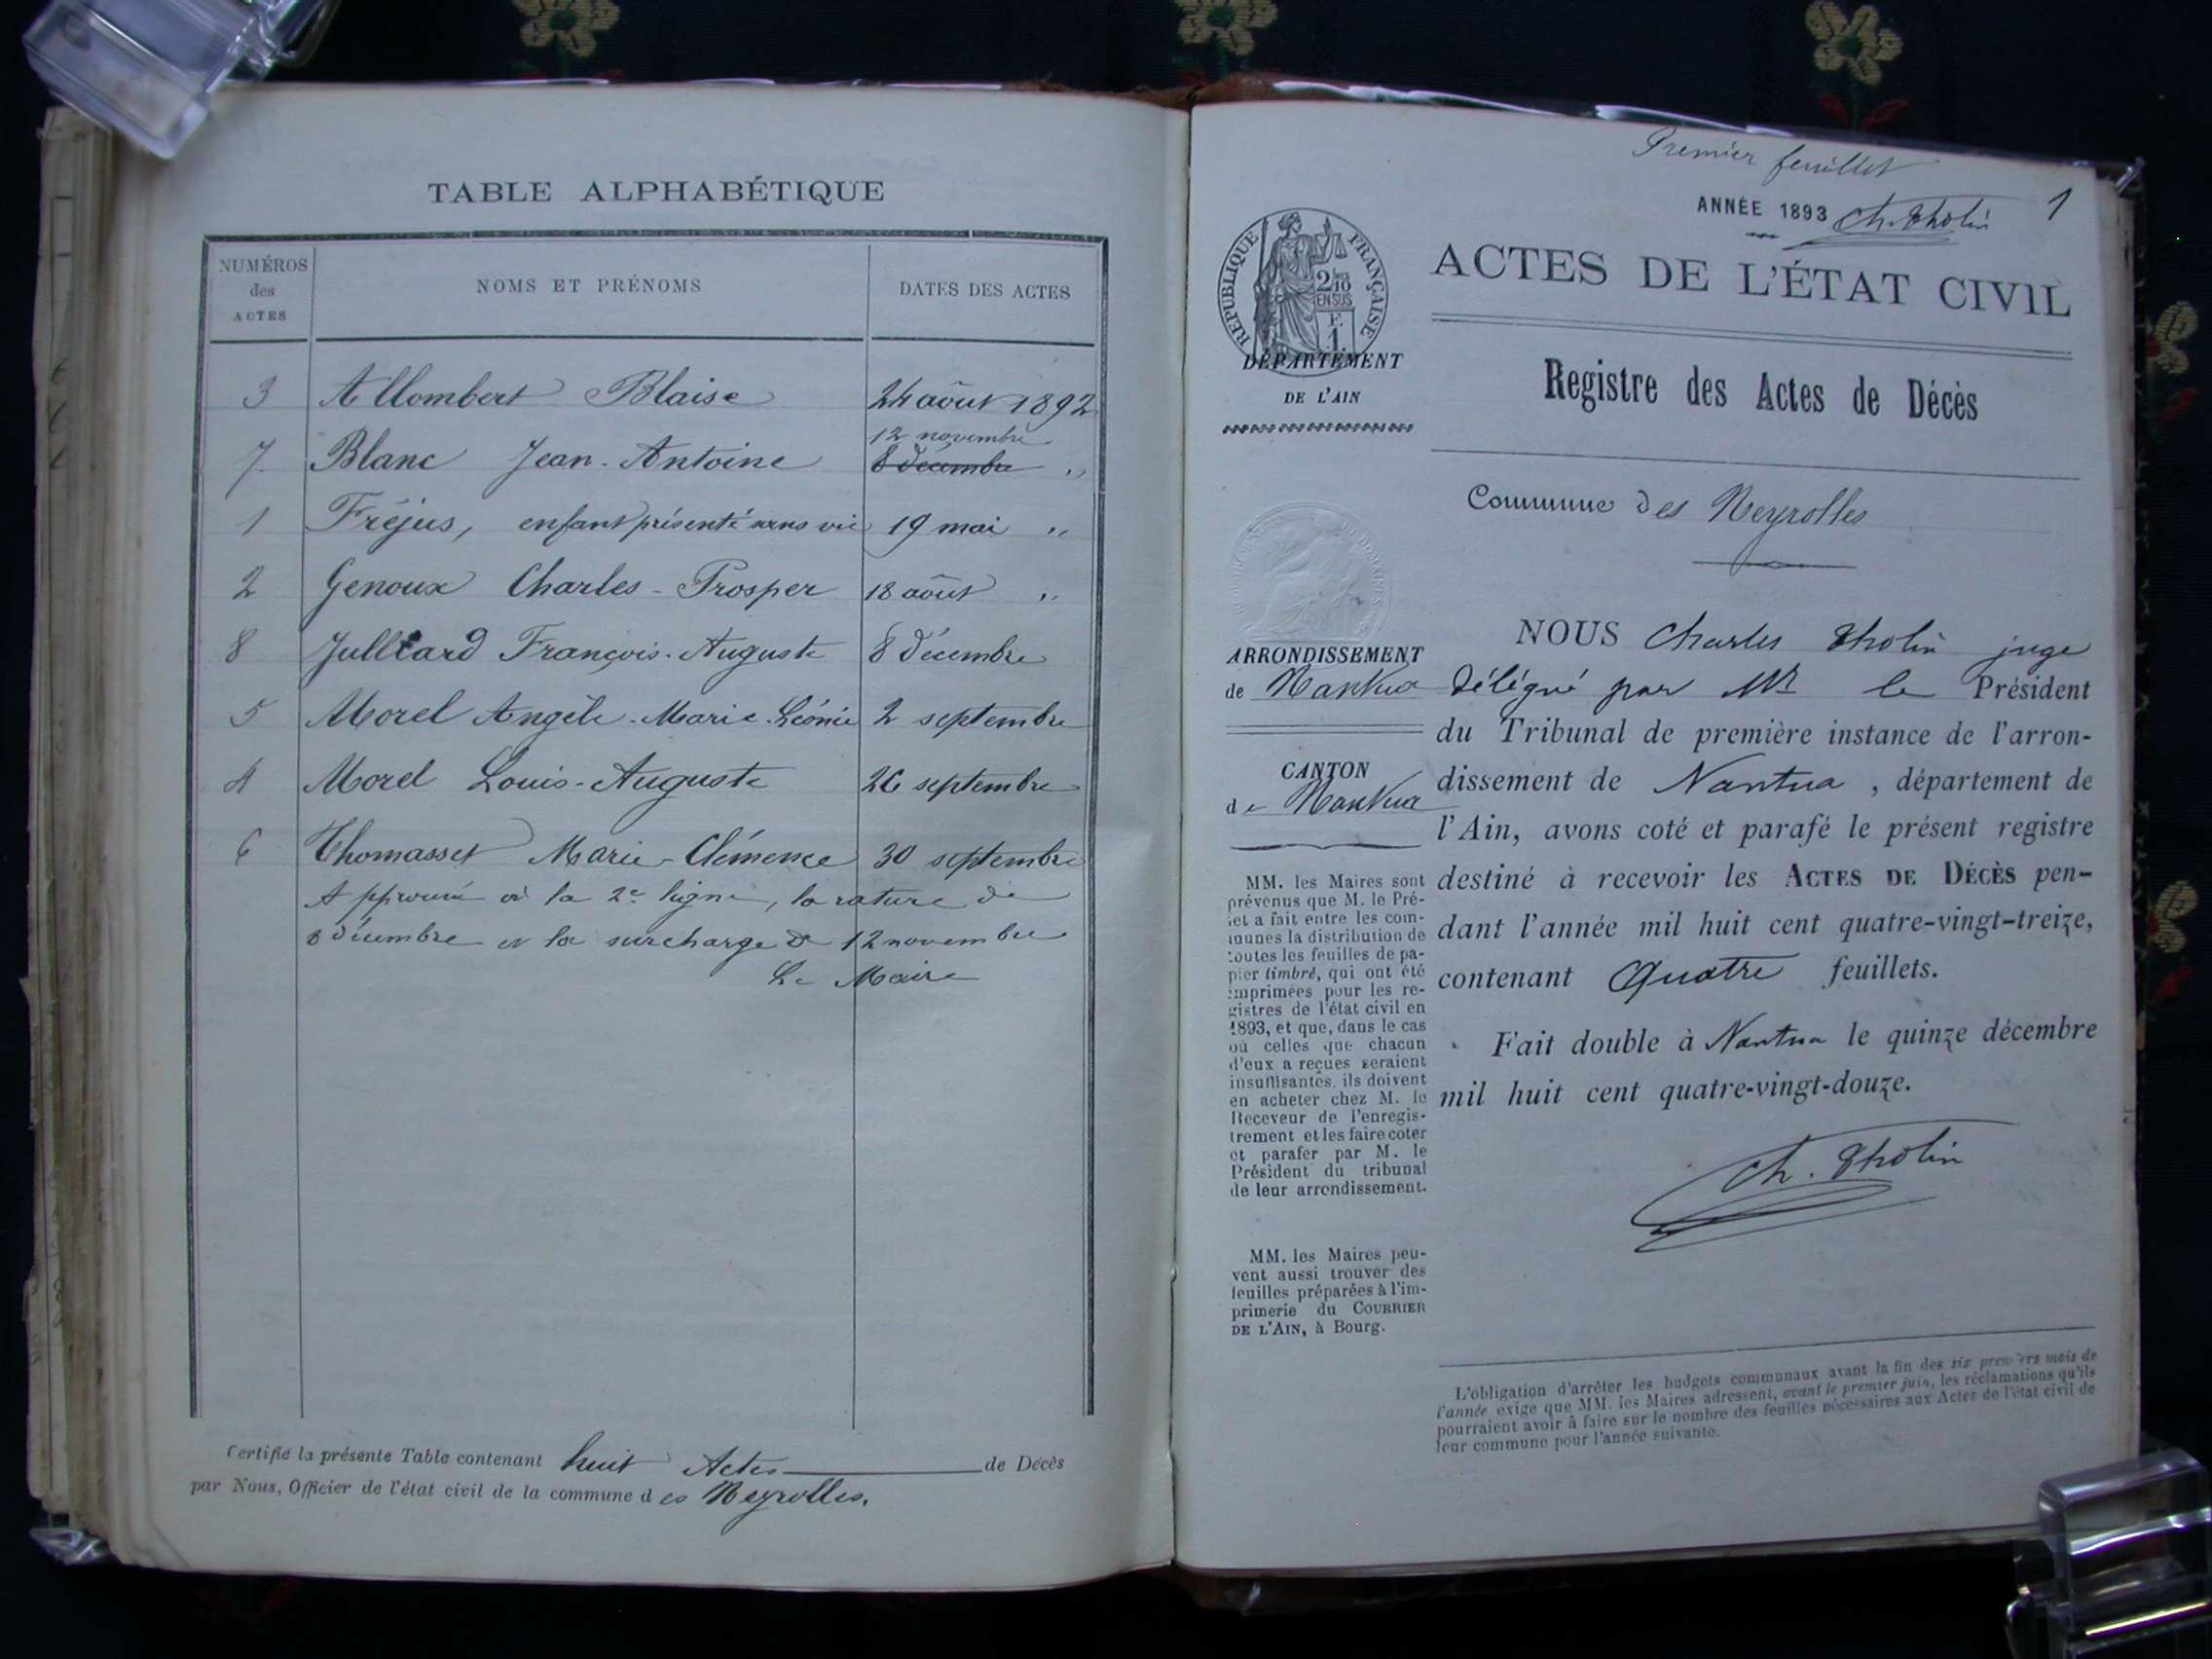 TABLE ALPHABÉTIQUE
NUMÉROS des ACTES NOMS ET PRÉNOMS DATES DES ACTES
3 Allombert Blaise 24 août 1892
12 novembre
7 Blanc Jean-Antoine 8 décembre "
1 Fréjus, enfant présenté sans vie 19 mai "
2 Genoux Charles-Prosper 18 août "
8 Julliard François-Auguste 8 décembre
5 Morel Angèle-Marie-Léonie 2 septembre
4 Morel Louis-Auguste 26 septembre
6 Thomasset Marie-Clémence 30 septembre
Approuvé à la 2e ligne, la rature de
8 décembre et la surcharge de 12 novembre
Le Maire
Certifié la présente Table contenant huit Actes de Décès
par Nous, Officier de l'état civil de la commune des Neyrolles.
Premier feuillet
ANNÉE 1893 Ch. Tholin 1
RÉPUBLIQUE FRANÇAISE
2/10
EN SUS
F.
1.
ACTES DE L'ÉTAT CIVIL
DÉPARTEMENT
DE L'AIN
Registre des Actes de Décès
Commune des Neyrolles
ARRONDISSEMENT
de Nantua
CANTON
de Nantua
MM. les Maires sont
prévenus que M. le Pré-
fet a fait entre les com-
munes la distribution de
toutes les feuilles de pa-
pier timbré, qui ont été
imprimées pour les re-
gistres de l'état civil en
1893, et que, dans le cas
où celles que chacun
d'eux a reçues seraient
insuffisantes, ils doivent
en acheter chez M. le
Receveur de l'enregis-
trement et les faire coter
et parafer par M. le
Président du tribunal
de leur arrondissement.
MM. les Maires peu-
vent aussi trouver des
feuilles préparées à l'im-
primerie du COURRIER
DE L'AIN, à Bourg.
NOUS Charles Tholin juge
délégué par Mr le Président
du Tribunal de première instance de l'arron-
dissement de Nantua, département de
l'Ain, avons coté et parafé le présent registre
destiné à recevoir les ACTES DE DÉCÈS pen-
dant l'année mil huit cent quatre-vingt-treize,
contenant Quatre feuillets.
Fait double à Nantua le quinze décembre
mil huit cent quatre-vingt-douze.
Ch. Tholin
L'obligation d'arrêter les budgets communaux avant la fin des six premiers mois de
l'année exige que MM. les Maires adressent, avant le premier juin, les réclamations qu'ils
pourraient avoir à faire sur le nombre des feuilles nécessaires aux Actes de l'état civil de
leur commune pour l'année suivante.